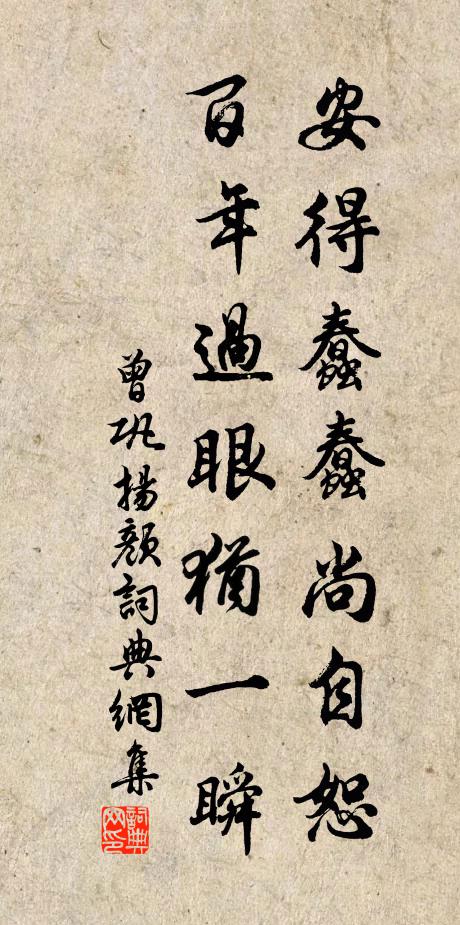 安得蠢蠢尚自恕
百年過眼猶一瞬
曾巩揚顏詞典網集
詞典网印